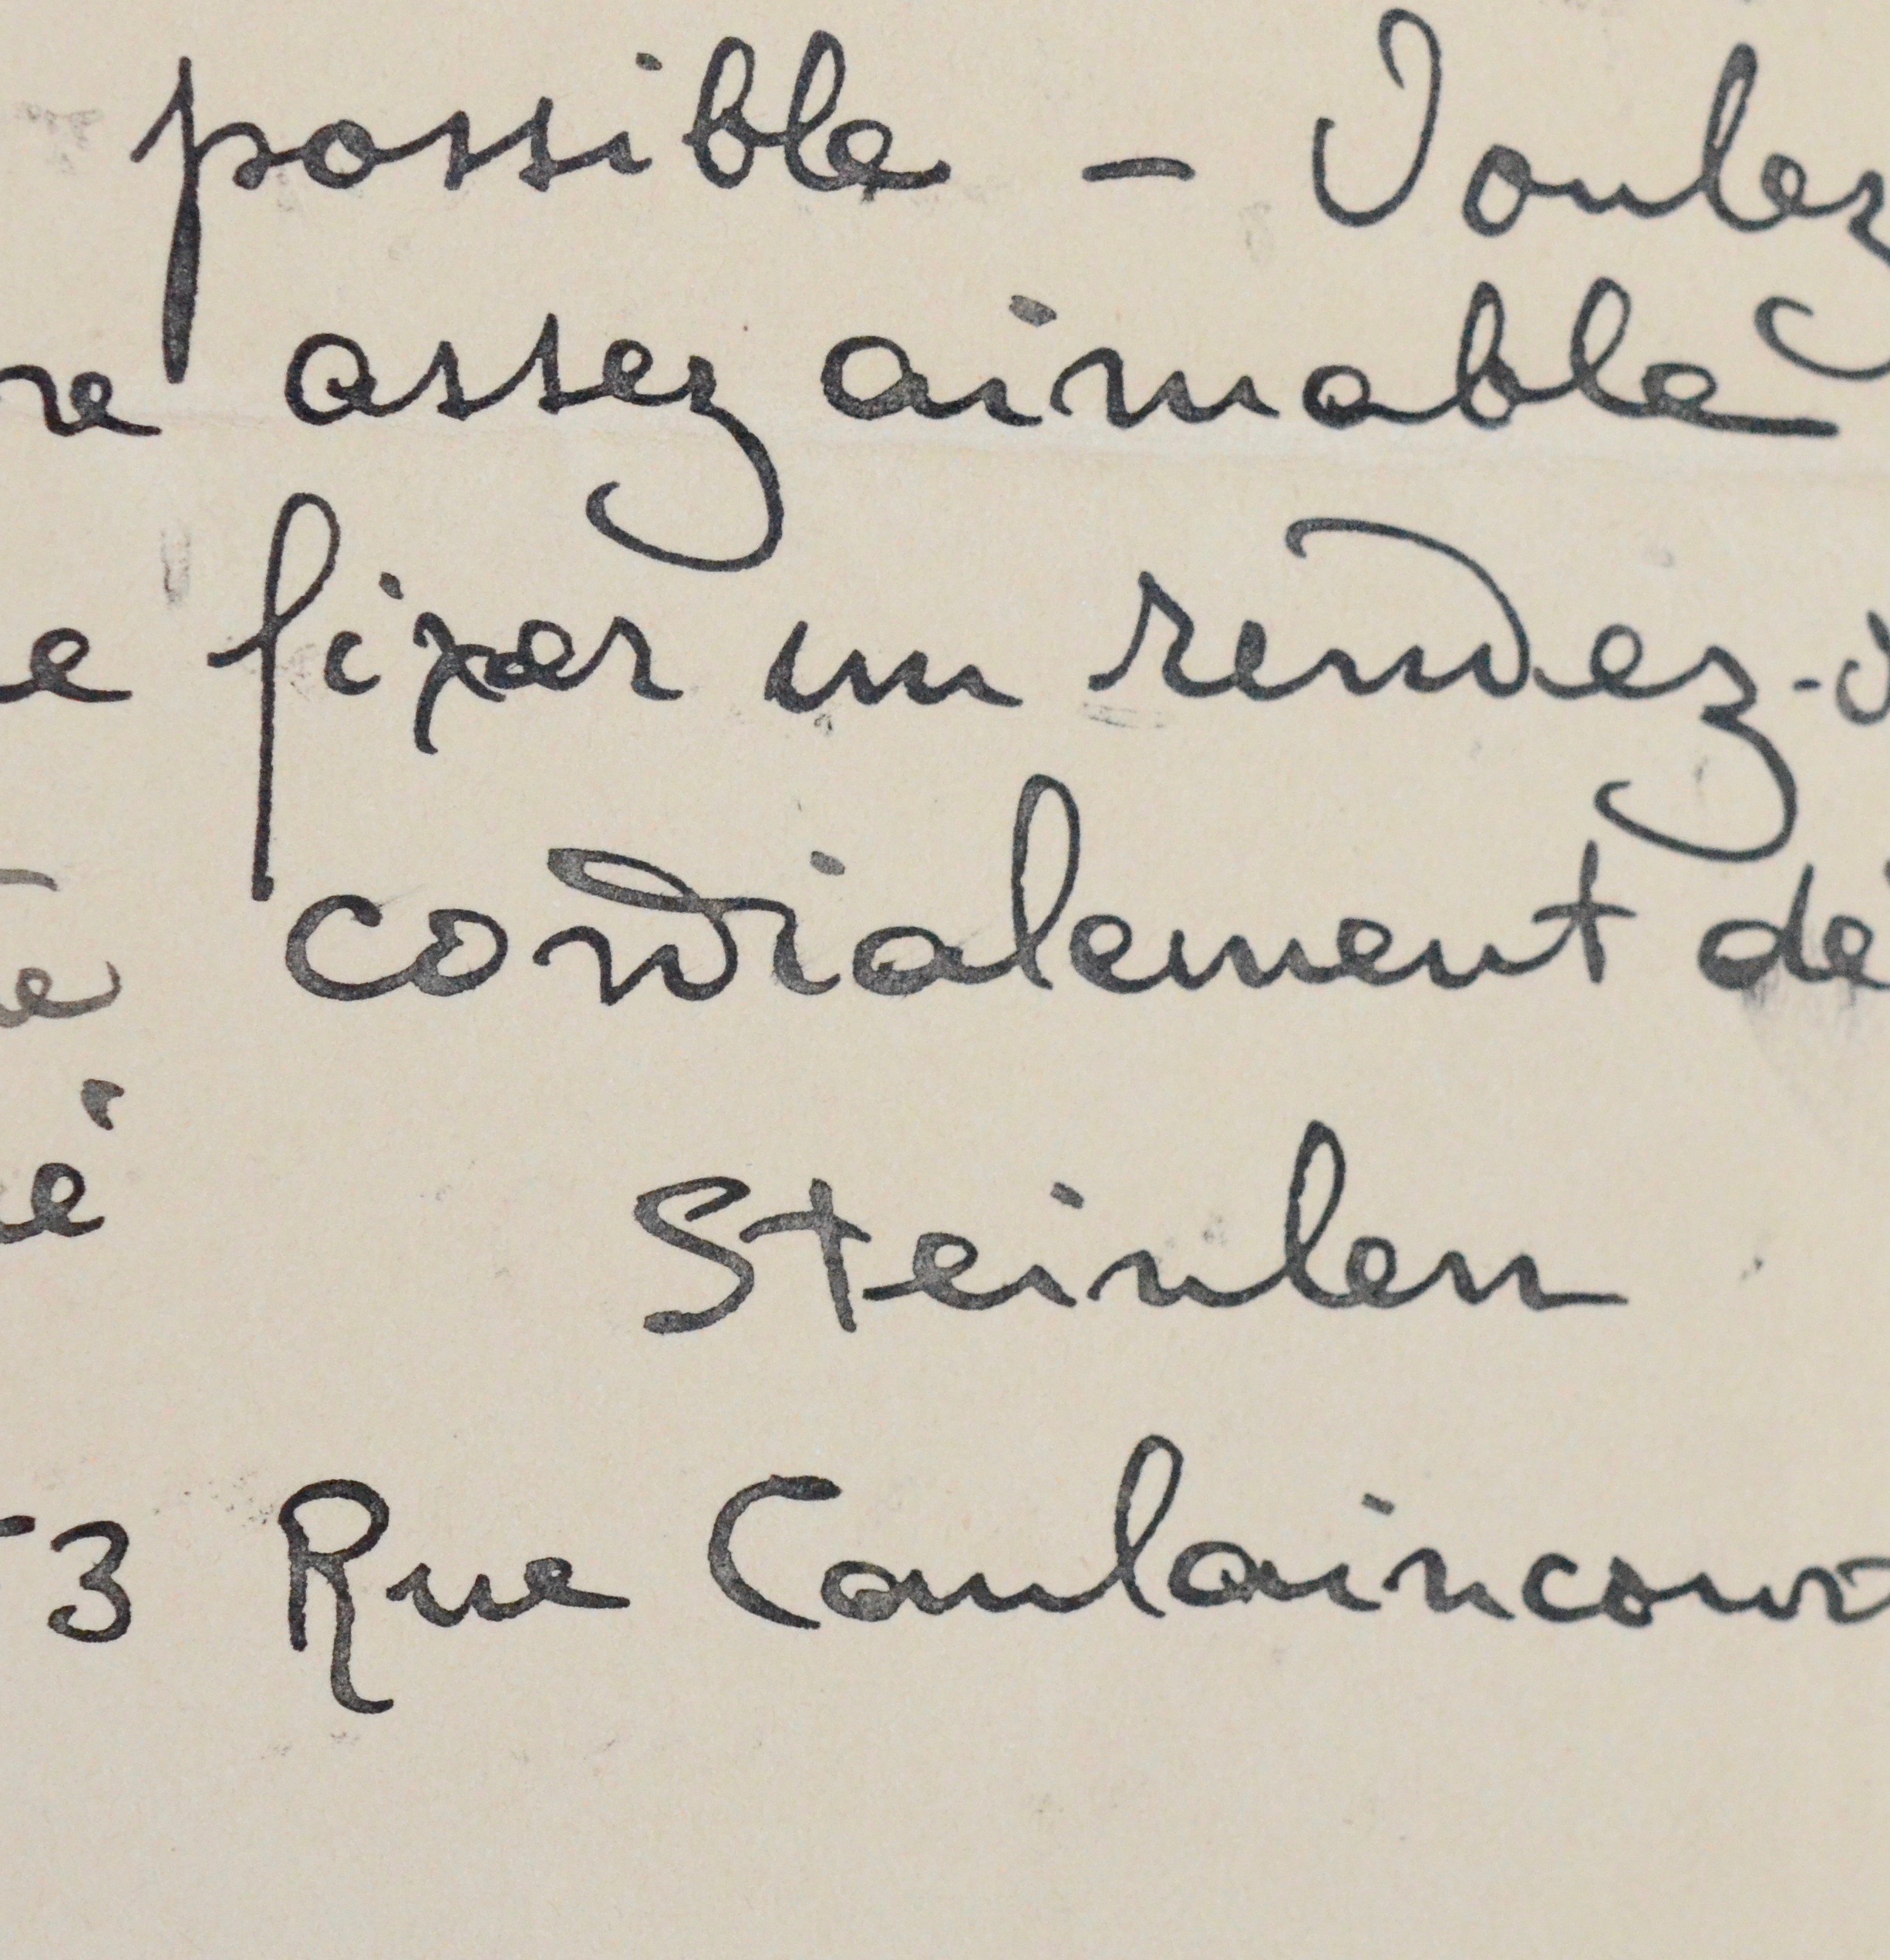 possible - Voulez
re assez aimable
e fixer un rendez-v
cordialement dé
é
Steinlen
3 Rue Caulaincour